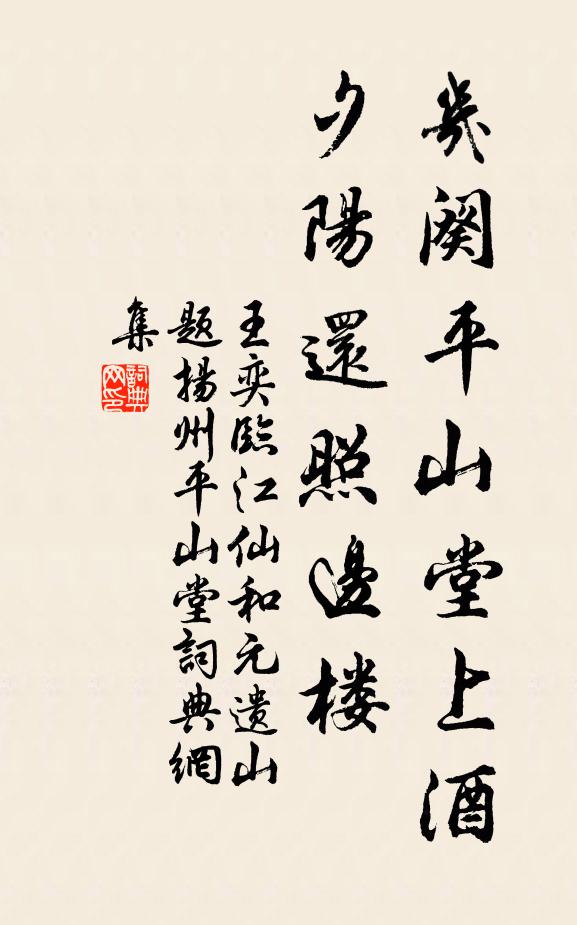 幾阕平山堂上酒
夕陽還照邊楼
王奕臨江仙和元遗山
题揚州平山堂詞典網
集
詞典网印